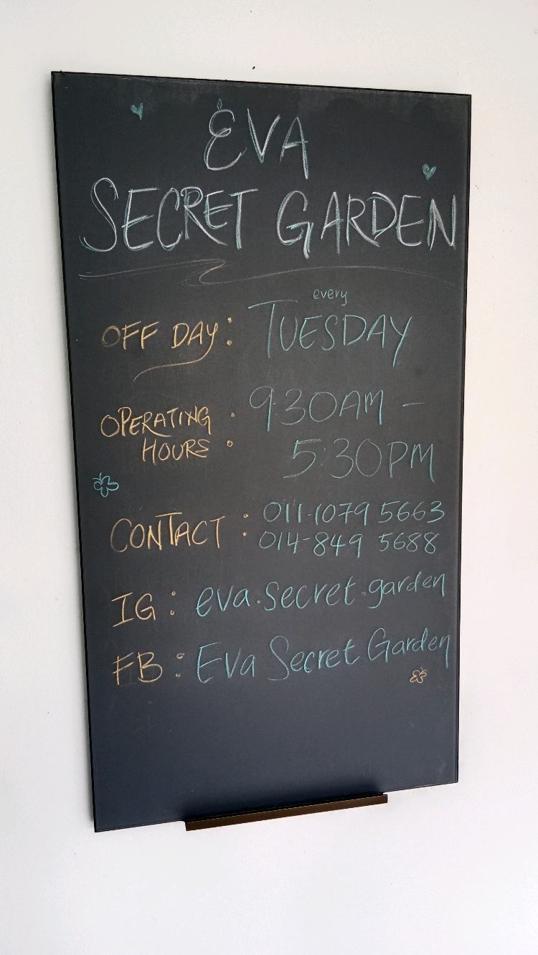 EVA
SECRET GARDEN
OFF DAY: every TUESDAY
OPERATING HOURS: 9:30AM -
5:30PM
CONTACT: 011-1079 5663
014-849 5688
IG: eva.secret.garden
FB: Eva Secret Garden